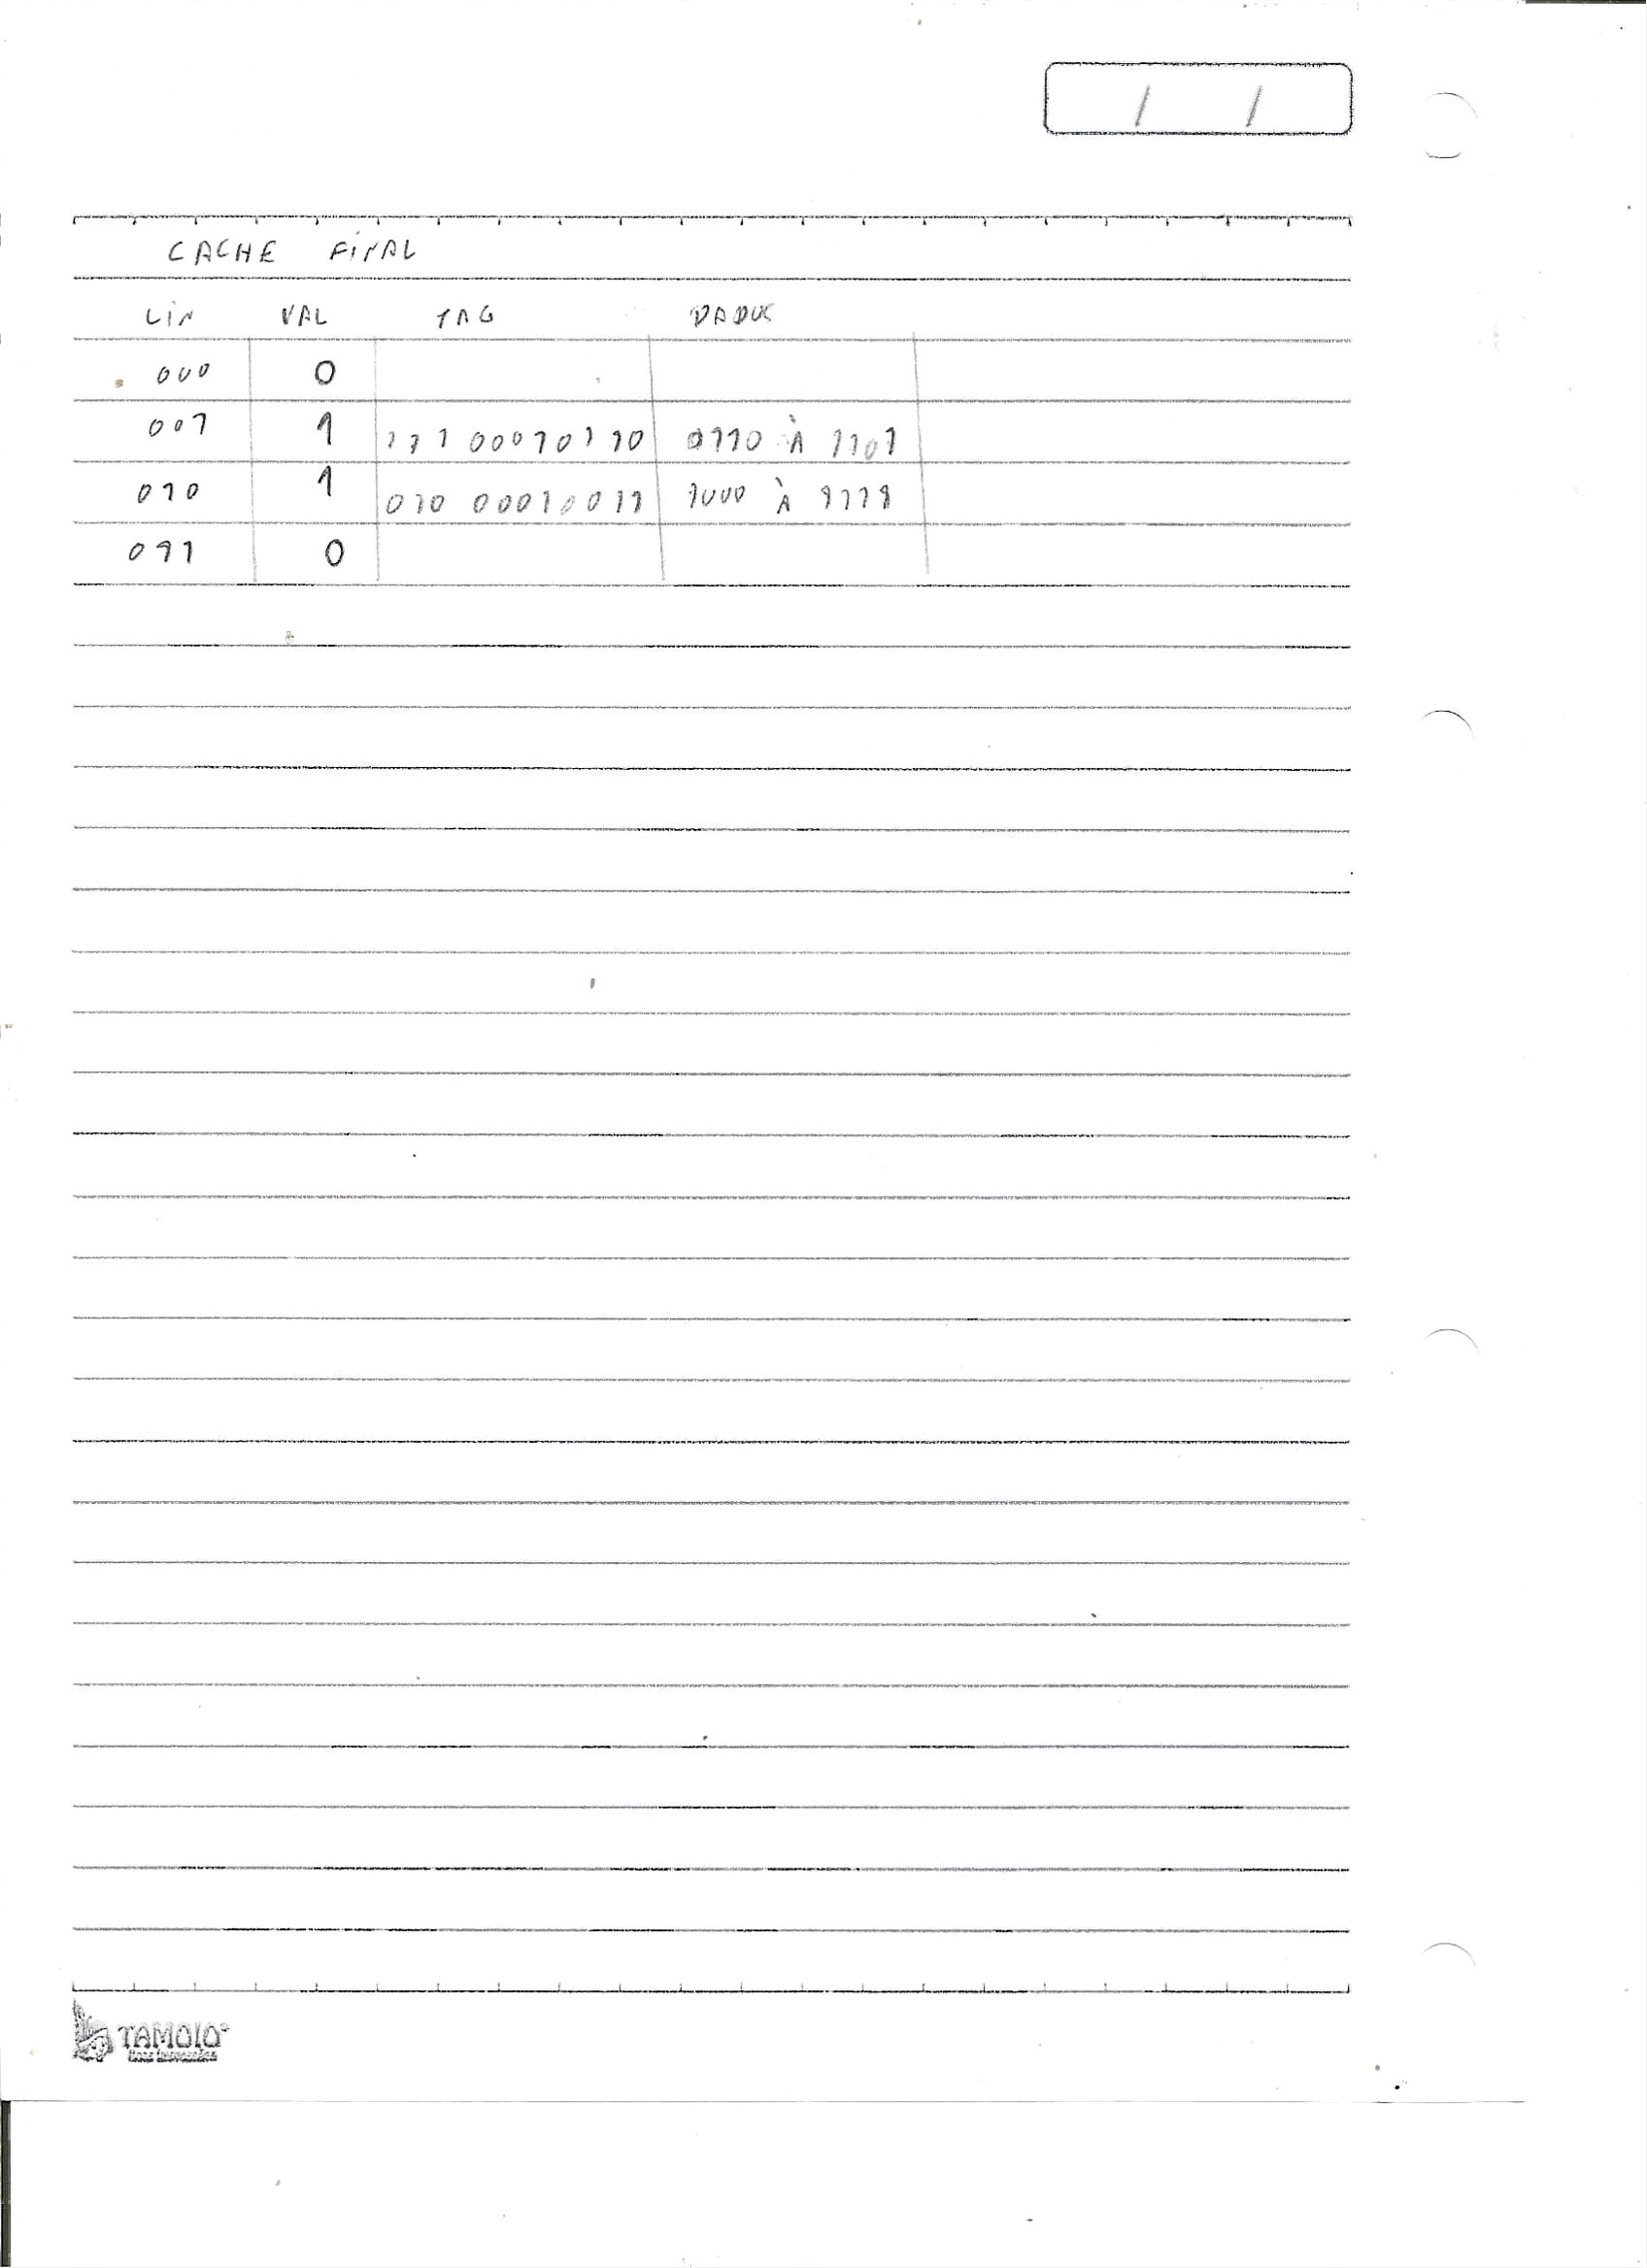 / /
CACHE FINAL
LIN VAL TAG DADOS
000 0
001 1 111 00010110 0110 À 1101
010 1 010 00010011 1000 À 1111
011 0
TAMOIO